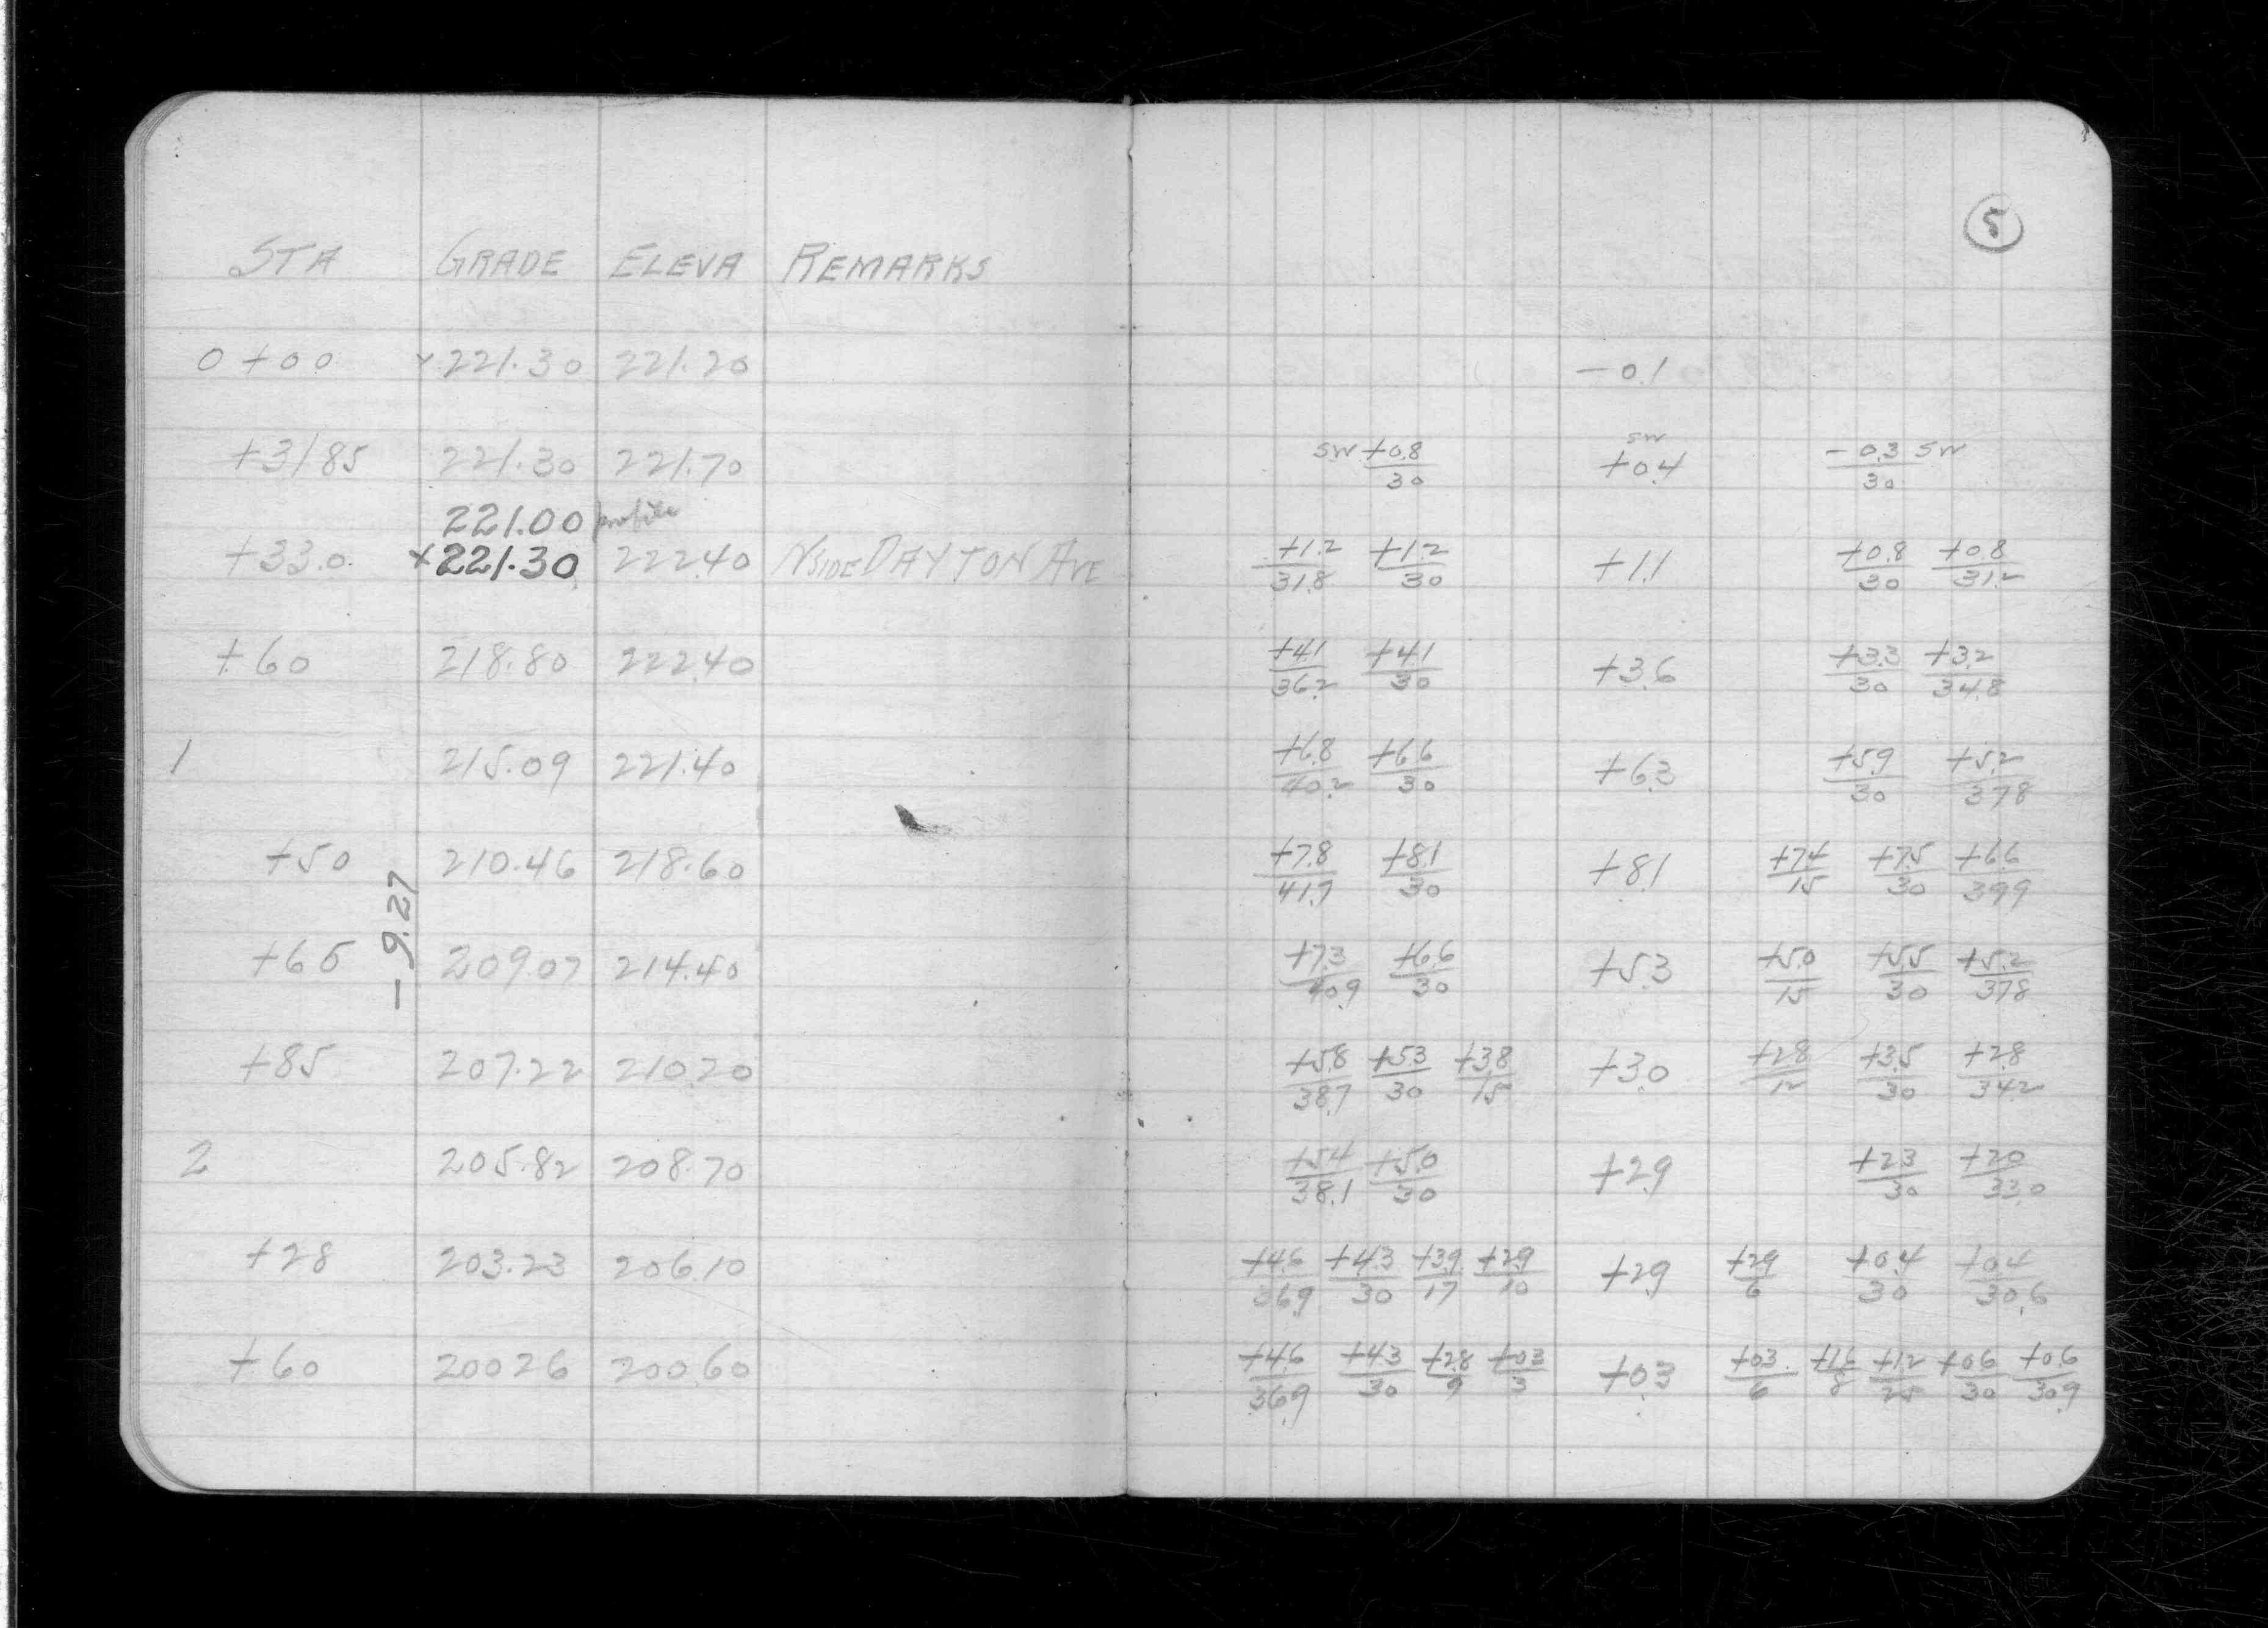 5
STA GRADE ELEVA REMARKS
0+00 x221.30 221.20 -0.1
+31.85 221.30 221.70 SW +0.8/30 SW +0.4 -0.3/30 SW
221.00 profile
+33.0 x221.30 222.40 N SIDE DAYTON AVE +1.2/31.8 +1.2/30 +1.1 +0.8/30 +0.8/31.2
+60 218.80 222.40 +4.1/36.2 +4.1/30 +3.6 +3.3/30 +3.2/34.8
1 215.09 221.40 +6.8/40.2 +6.6/30 +6.3 +5.9/30 +5.2/37.8
+50 210.46 218.60 +7.8/41.7 +8.1/30 +8.1 +7.4/15 +7.5/30 +6.6/39.9
-9.27
+65 209.07 214.40 +7.3/40.9 +6.6/30 +5.3 +5.0/15 +5.5/30 +5.2/37.8
+85 207.22 210.20 +5.8/38.7 +5.3/30 +3.8/15 +3.0 +2.8/12 +3.5/30 +2.8/34.2
2 205.82 208.70 +5.4/38.1 +5.0/30 +2.9 +2.3/30 +2.0/33.0
+28 203.23 206.10 +4.6/36.9 +4.3/30 +3.9/17 +2.9/10 +2.9 +2.9/6 +0.4/30 +0.4/30.6
+60 200.26 200.60 +4.6/36.9 +4.3/30 +2.8/9 +0.3/3 +0.3 +0.3/6 +1.6/8 +1.2/25 +0.6/30 +0.6/30.9